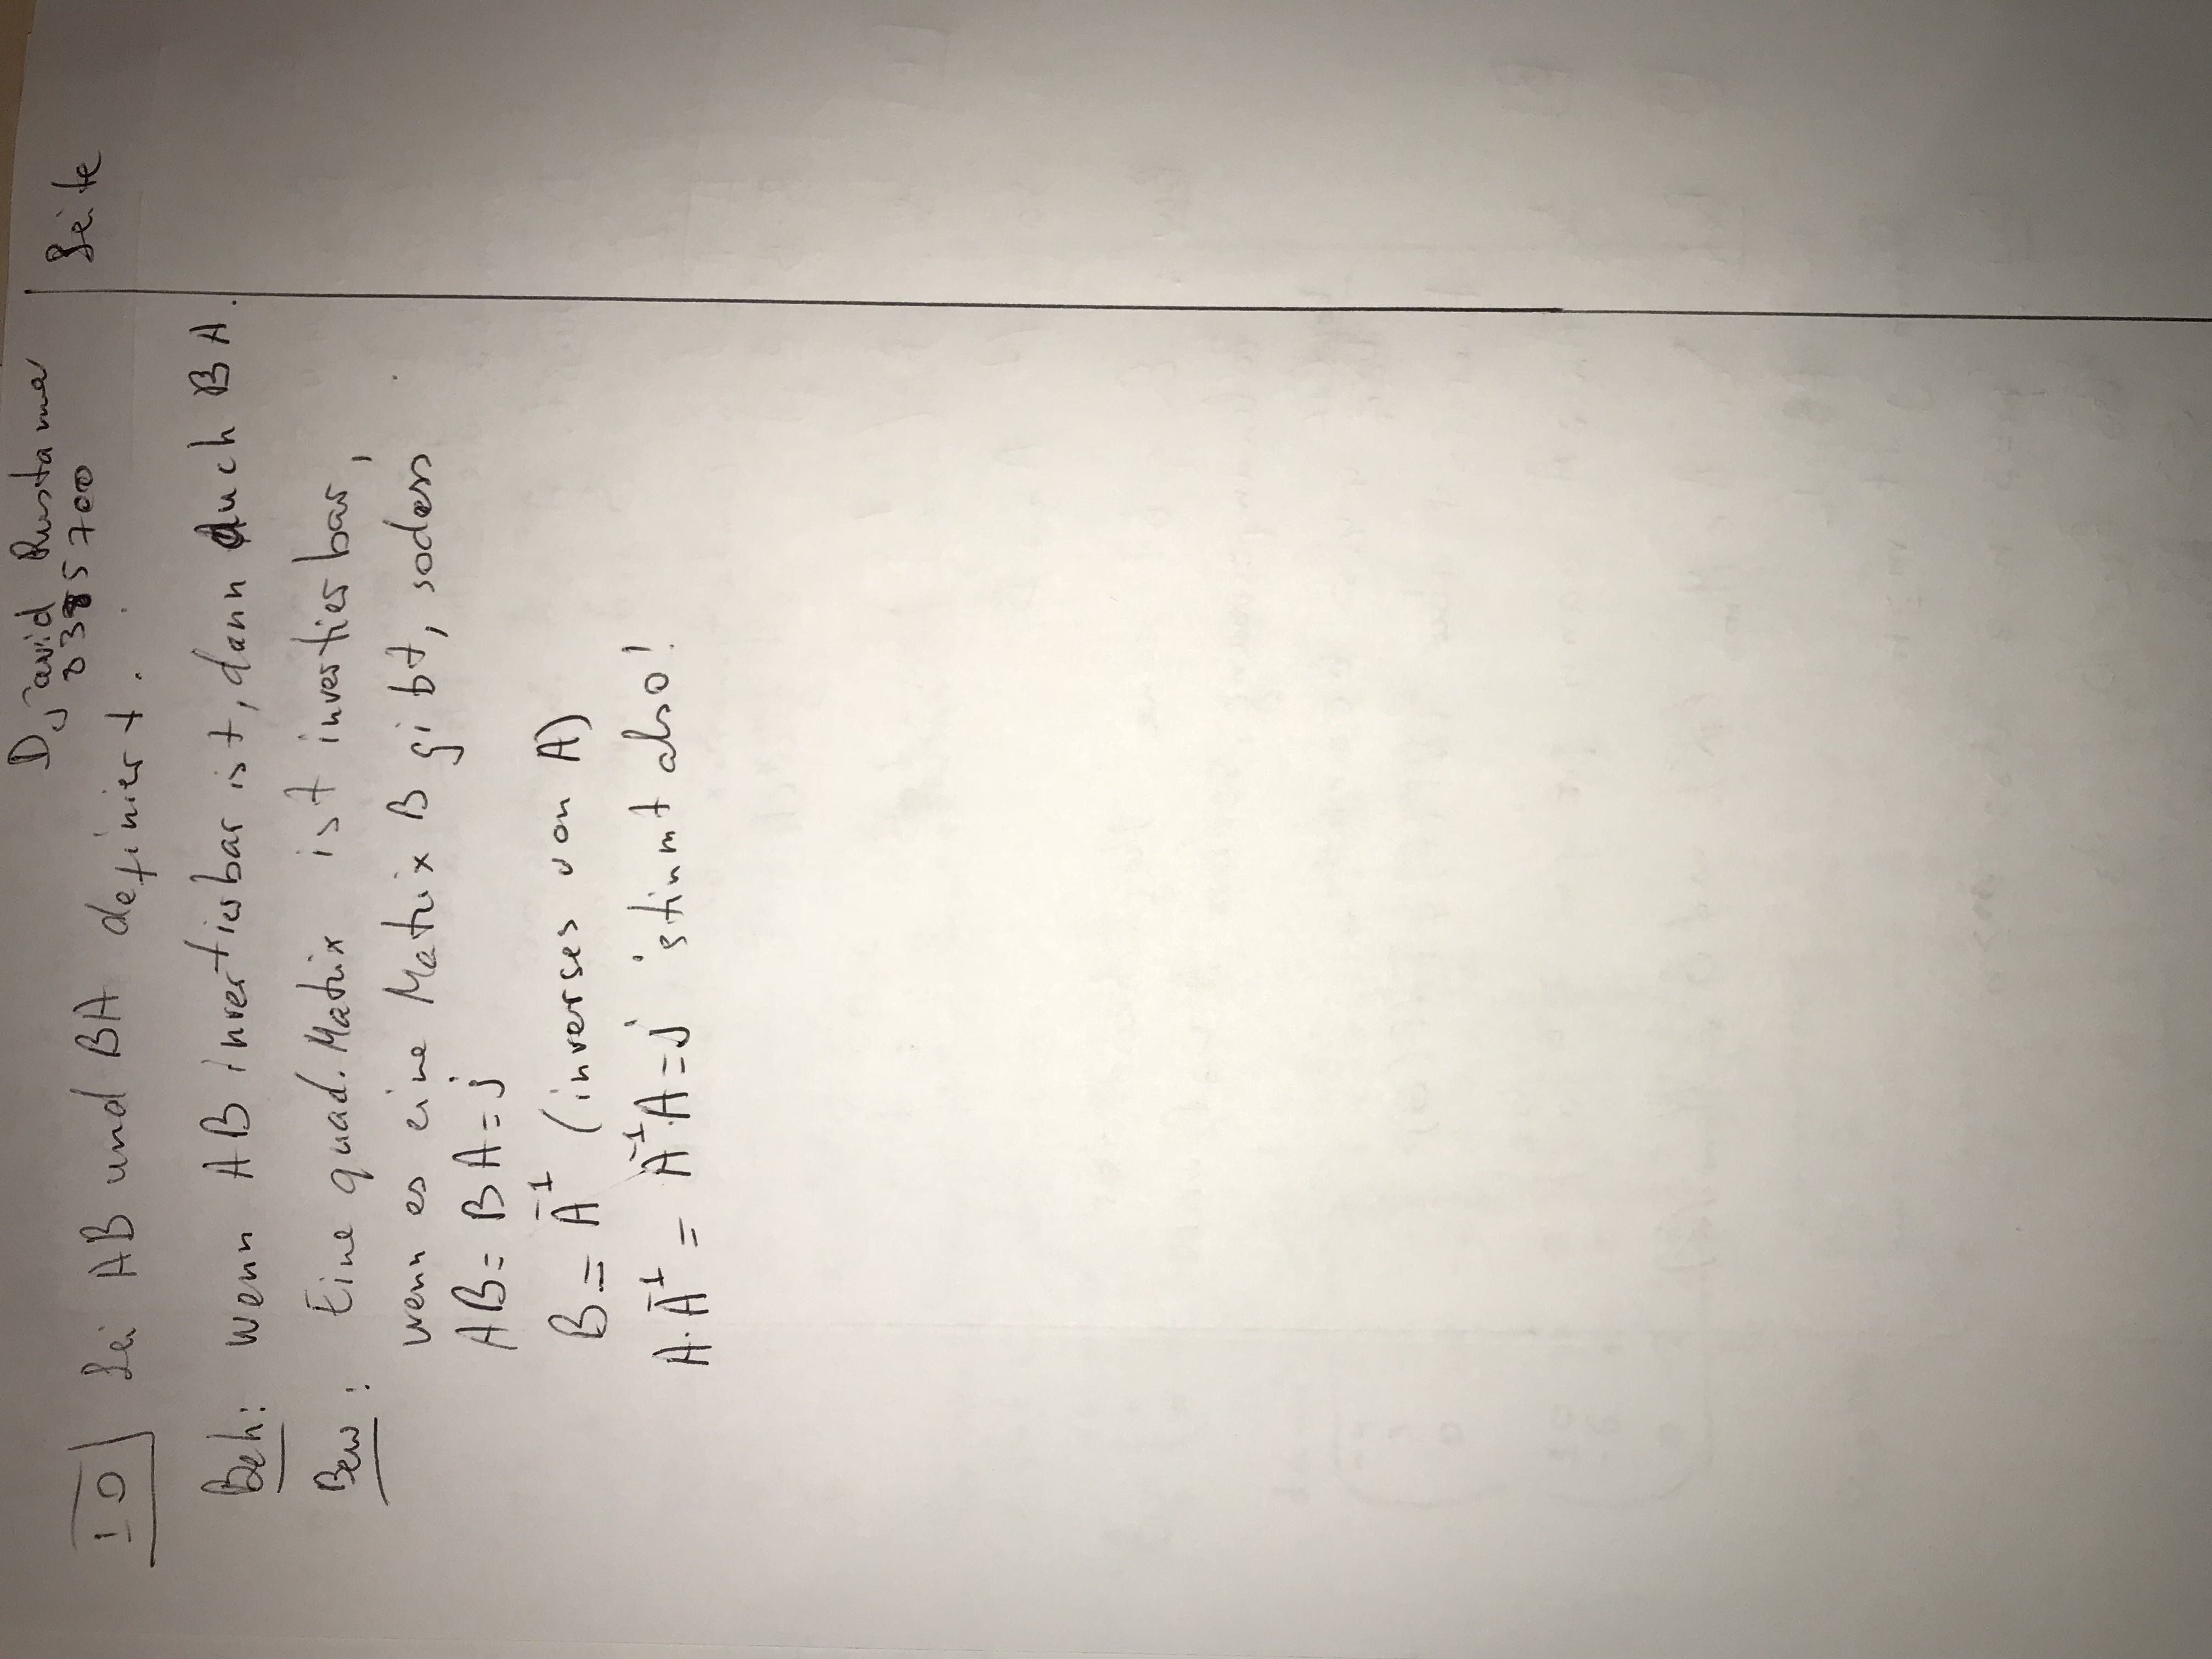 Djavid Rustamov
8385700
Seite
10 Sei AB und BA definiert.
Beh: wenn AB invertierbar ist, dann Auch BA.
Bew: Eine quad. Matrix ist invertierbar,
wenn es eine Matrix B gibt, sodass
AB = BA = j
B = A⁻¹ (inverses von A)
A·A⁻¹ = A⁻¹·A = j stimmt also!